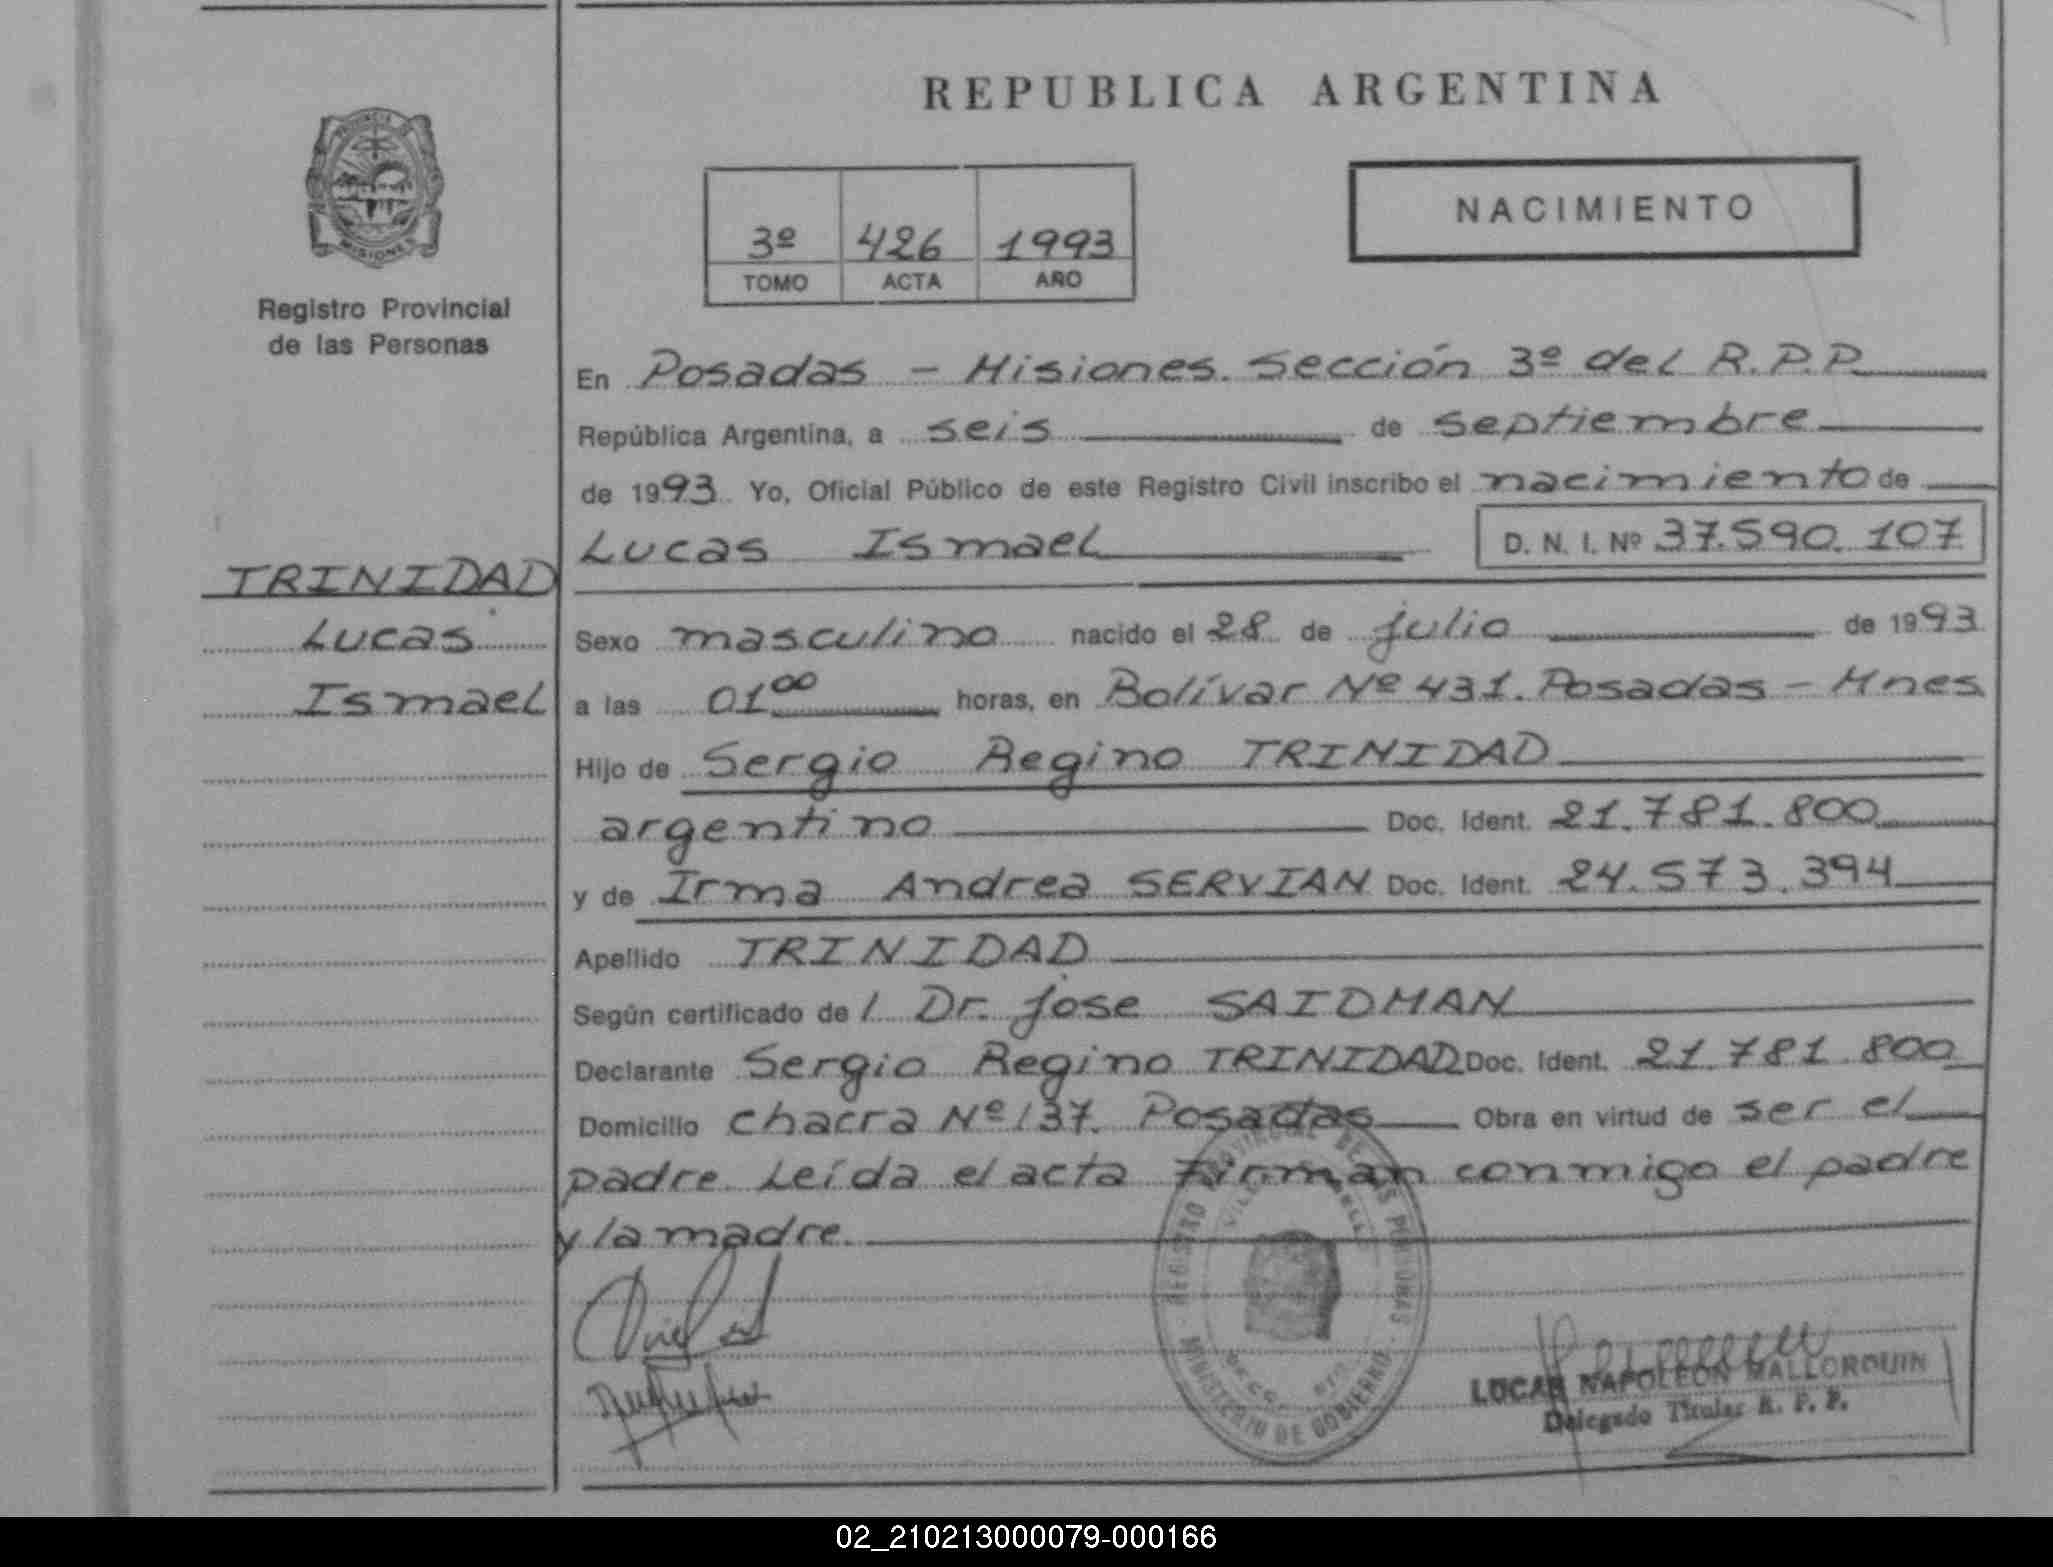 REPUBLICA ARGENTINA
PROVINCIA DE
MISIONES
Registro Provincial
de las Personas
3º 426 1993
TOMO ACTA AÑO
NACIMIENTO
En Posadas - Misiones. Sección 3º del R.P.P.
República Argentina, a seis de septiembre
de 1993 Yo, Oficial Público de este Registro Civil inscribo el nacimiento de
Lucas Ismael D. N. I. Nº 37.590.107
TRINIDAD
Lucas
Ismael
Sexo masculino nacido el 28 de julio de 1993
a las 01⁰⁰ horas, en Bolívar Nº 431. Posadas - Mnes
Hijo de Sergio Regino TRINIDAD
argentino Doc. Ident. 21.781.800
y de Irma Andrea SERVIAN Doc. Ident. 24.573.394
Apellido TRINIDAD
Según certificado de l Dr. Jose SAIDMAN
Declarante Sergio Regino TRINIDAD Doc. Ident. 21.781.800
Domicilio chacra Nº 137. Posadas Obra en virtud de ser el
padre. Leída el acta Firman conmigo el padre
y la madre.
REGISTRO PROVINCIAL DE LAS PERSONAS
MINISTERIO DE GOBIERNO
LUCAS NAPOLEON MALLORQUIN
Delegado Titular R. P. P.
02_210213000079-000166